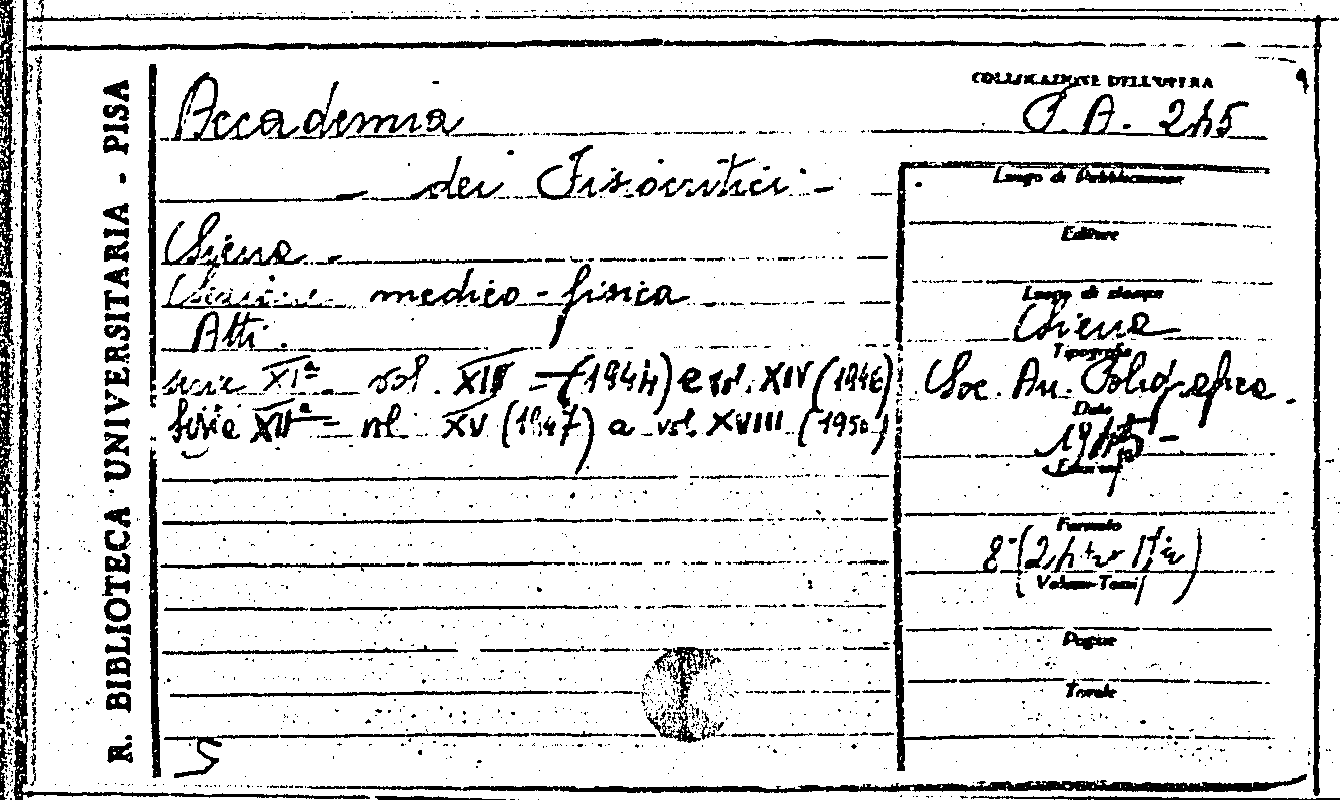 R. BIBLIOTECA UNIVERSITARIA - PISA
COLLOCAZIONE DELL'OPERA
P. A. 245
Accademia
- dei Fisiocritici -
Siena -
Sezione medico-fisica
Atti.
serie XIª - vol. XII (1944) e vol. XIV (1946)
Serie XIIª - vol. XV (1947) a vol. XVIII (1950)
Luogo di Pubblicazione
Editore
Luogo di stampa
Siena
Tipografia
Soc. An. Poligrafica.
Data
Formato
Volumi-Tomi
Pagine
Tavole
5